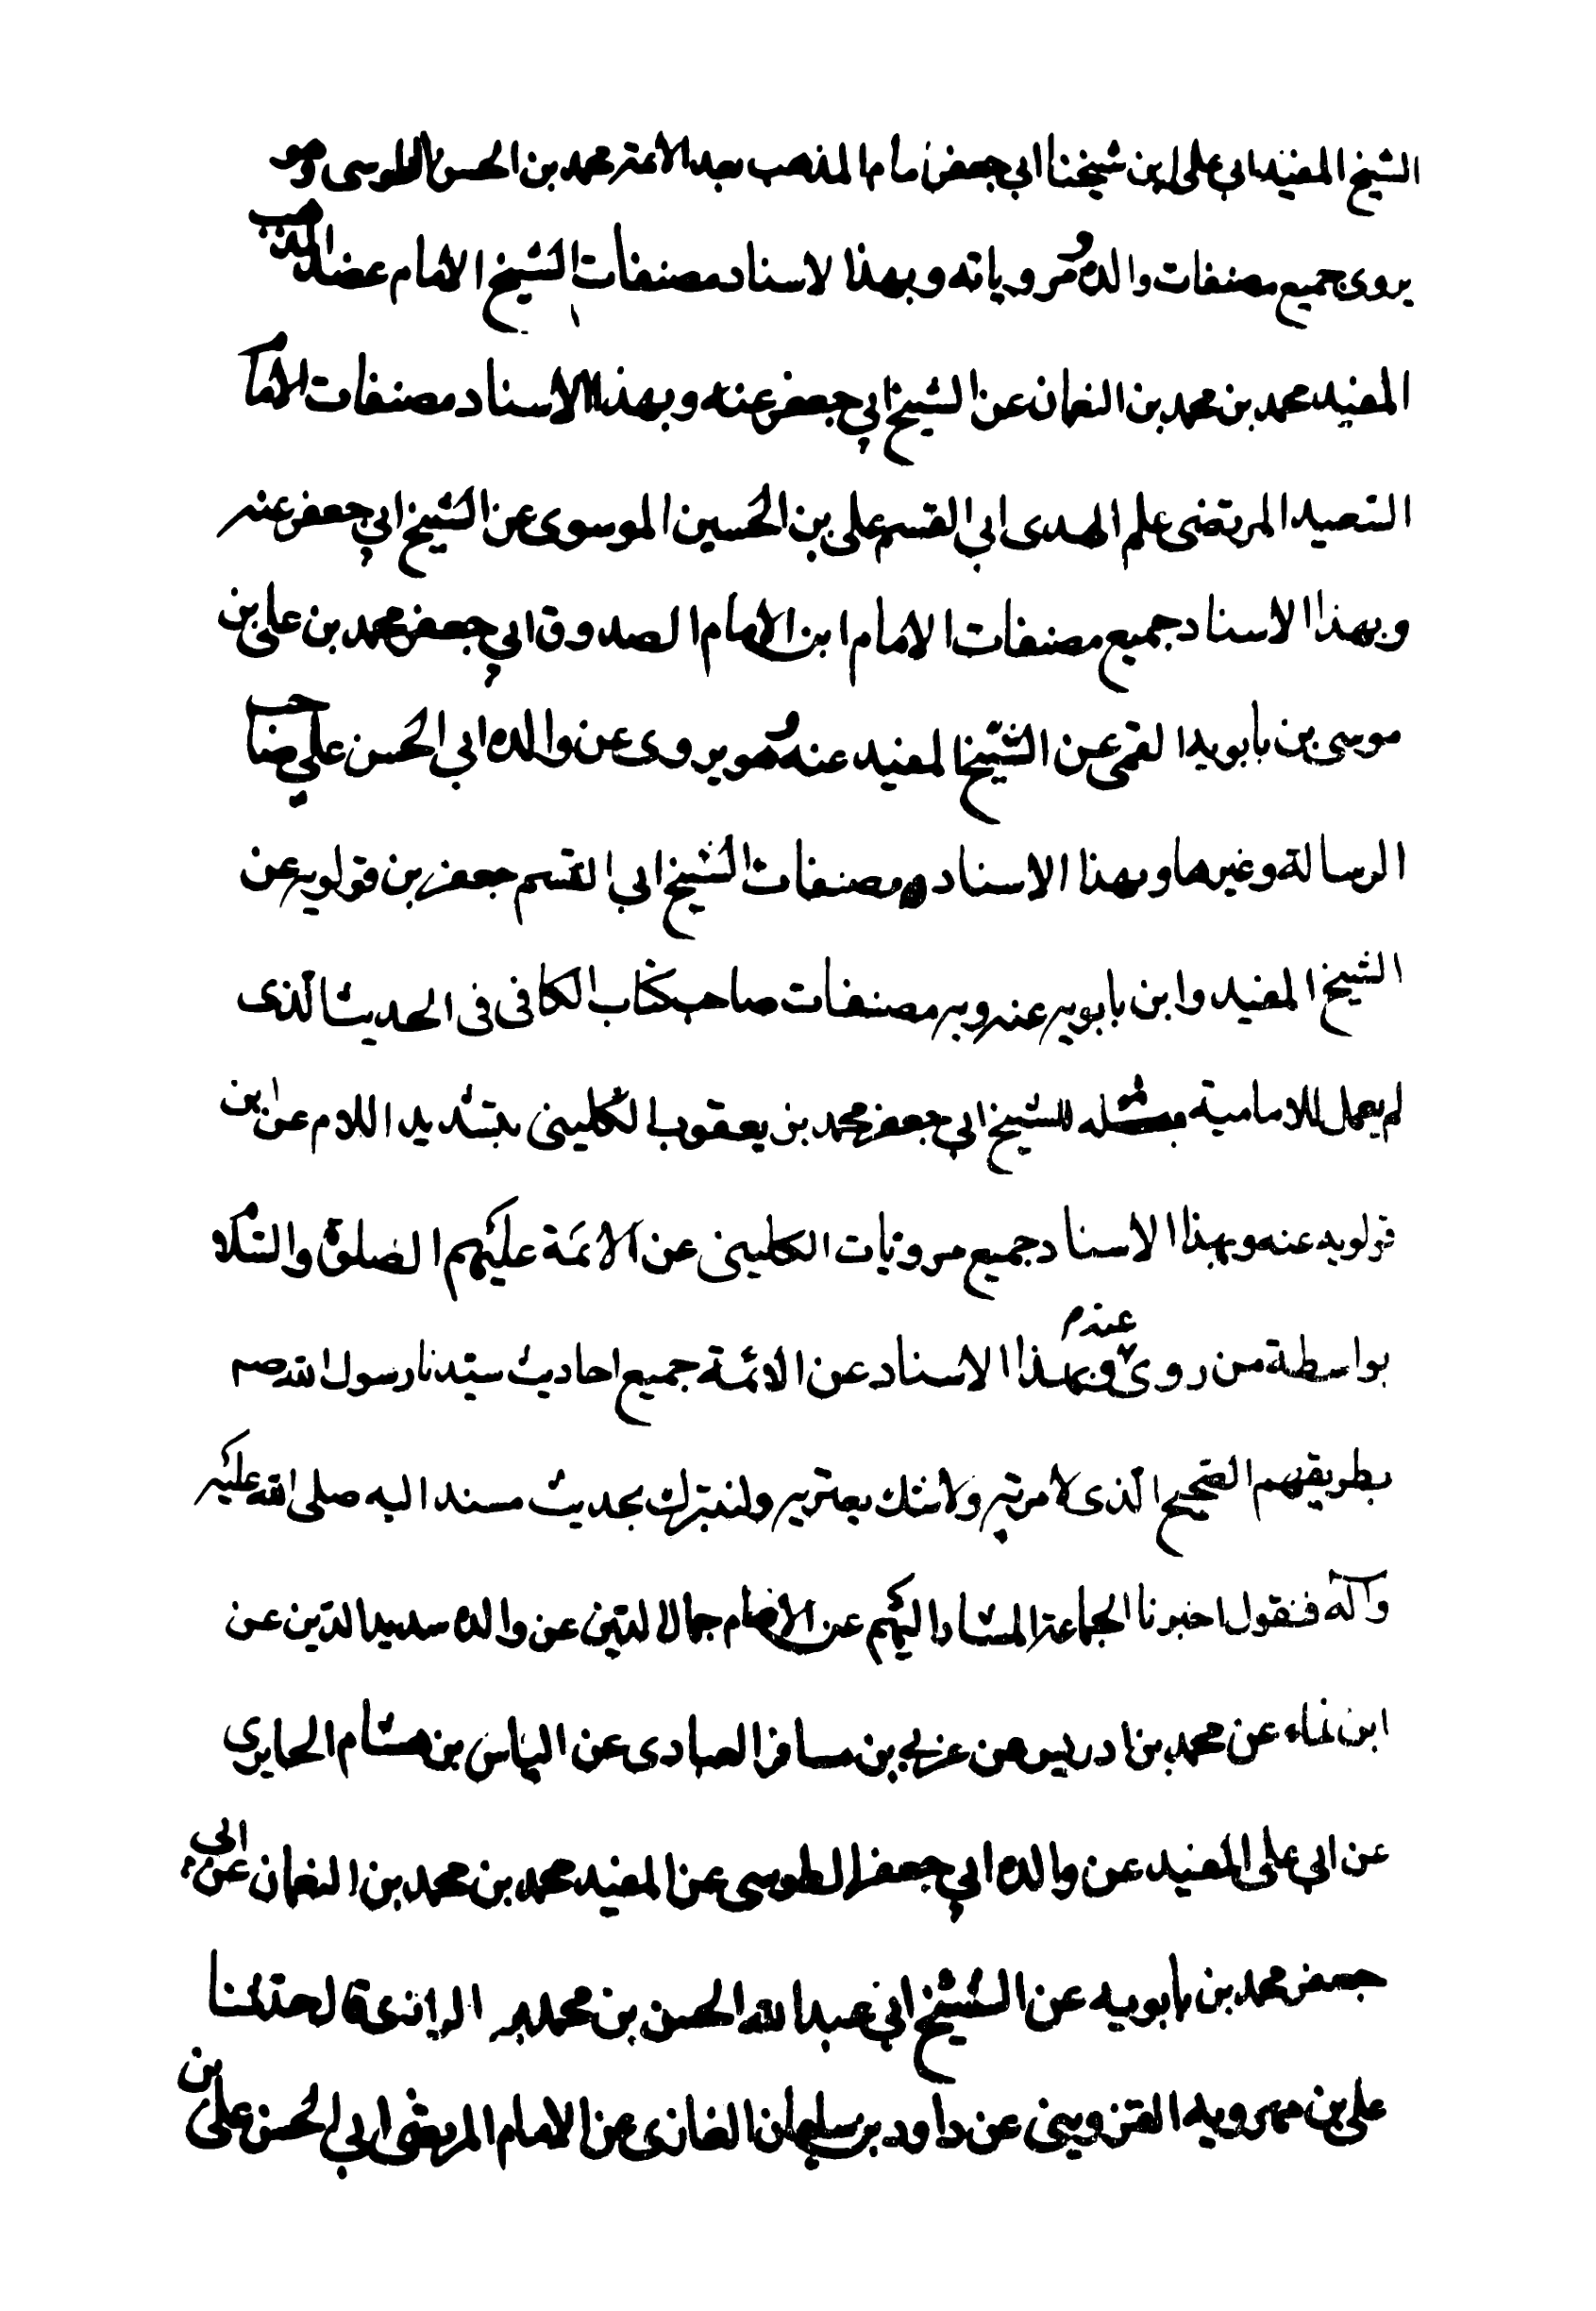 الشيخ المفيد ابي على ابن شيخنا ابي جعفر امام المذهب بعد الائمة محمد بن الحسن الطوسى وهو
يروى جميع مصنفات والده ومروياته وبهذا لاسناد مصنفات الشيخ الامام عضد المذهب
المفيد محمد بن محمد بن النعمان عن الشيخ ابي جعفر عنه وبهذا الاسناد مصنفات الاما
السيد المرتضى علم الهدى ابي القسم على بن الحسين الموسوى عن الشيخ ابي جعفر عنه
وبهذا الاسناد جميع مصنفات الامام ابن الامام الصدوق ابي جعفر محمد بن على بن
موسى بن بابويه القمى عن الشيخ المفيد عنه وهو يروى عن والده ابي الحسن على صاحب
الرسالة وغيرها وبهذا الاسناد مصنفات الشيخ ابي القسم جعفر بن قولويه عن
الشيخ المفيد وابن بابويه عنه وبه مصنفات صاحب كتاب الكافى فى الحديث الّذى
لم يعمل للامامية مثله للشيخ ابي جعفر محمد بن يعقوب الكلينى بتشديد اللام عن ابن
قولويه عنه وبهذا الاسناد جميع مرويّات الكلينى عن الائمّة عليهم الصلوة والسّلا
بواسطة من روى عنهم وبهذا الاسناد عن الائمّة جميع احاديث سيّدنا رسول الله صم
بطريقهم الصّحيح الّذى لا مرية ولا شك يعتريه ولنتبرّك بحديث مسند اليه صلى الله عليه
وآله فنقول اخبرنا الجماعة المشار اليهم عن الامام جمال الدّين عن والده سديد الدّين عن
ابن نماء عن محمد بن ادريس عن عربي بن مسافر العبادى عن الياس بن هشام الحايري
عن ابي على المفيد عن والده ابي جعفر الطوسى عن المفيد محمد بن محمد بن النعمان عن ابي
جعفر محمد بن بابويه عن الشيخ ابي عبد الله الحسن بن محمد الرازى قال حدثنا
على بن مهرويه القزوينى عن داود بن سليمان الغازى عن الامام المرتضى ابي الحسن على بن